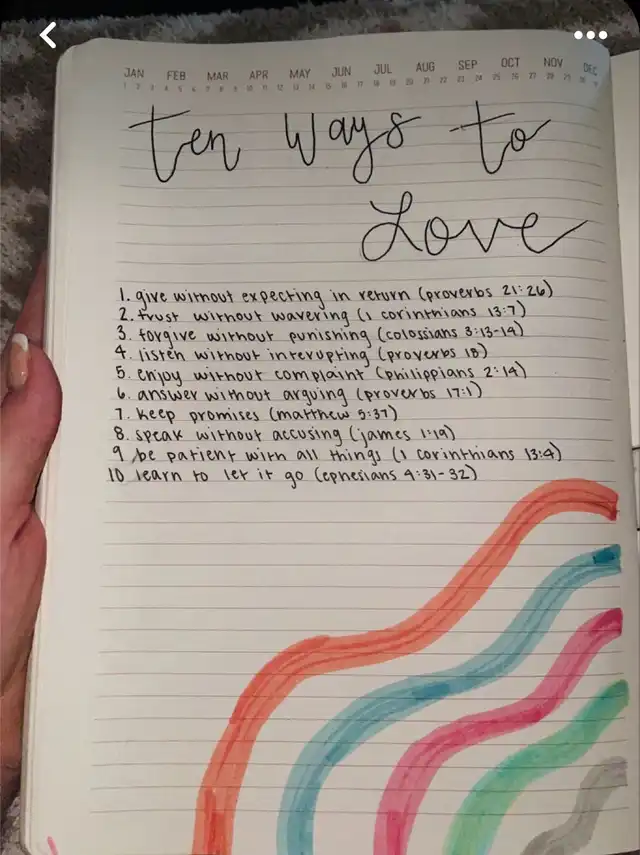 JAN FEB MAR APR MAY JUN JUL AUG SEP OCT NOV DEC
ten ways to
Love
1. give without expecting in return (proverbs 21:26)
2. trust without wavering (1 corinthians 13:7)
3. forgive without punishing (colossians 3:13-14)
4. listen without interupting (proverbs 18)
5. enjoy without complaint (philippians 2:14)
6. answer without arguing (proverbs 17:1)
7. keep promises (matthew 5:37)
8. speak without accusing (james 1:19)
9 be patient with all things (1 corinthians 13:4)
10 learn to let it go (ephesians 4:31-32)